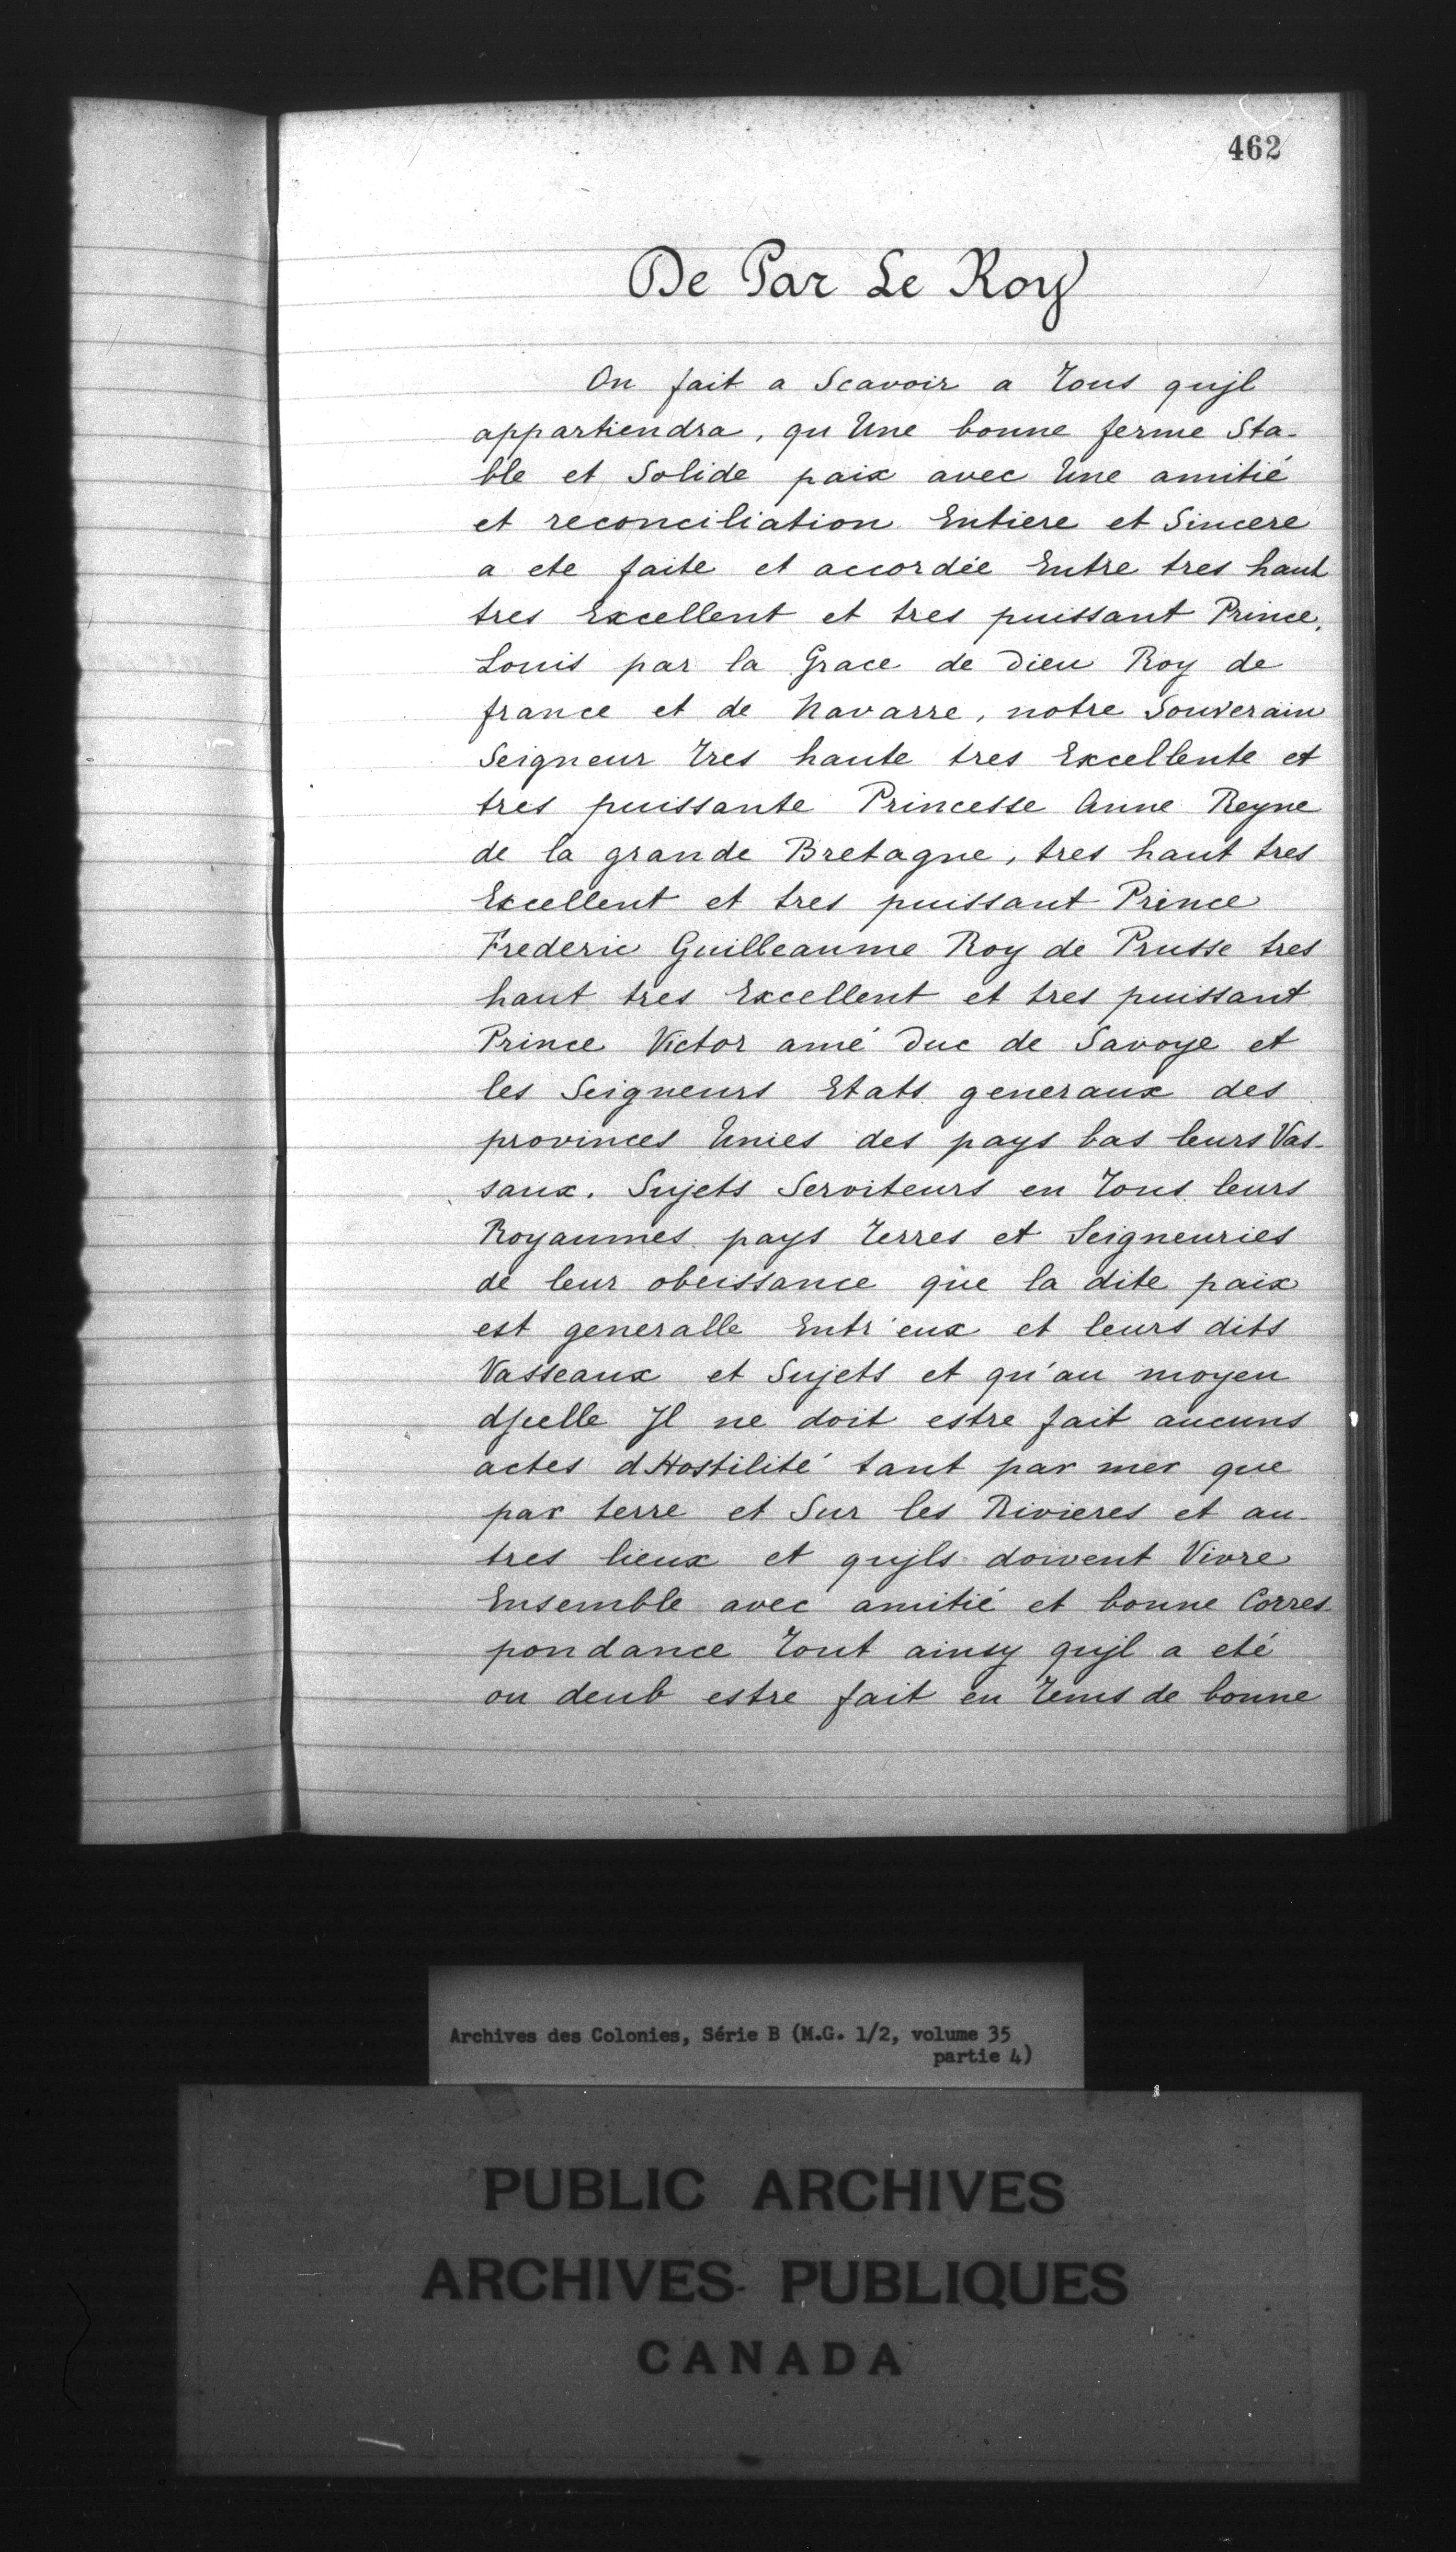 462
De Par Le Roy
On fait a Scavoir a Tous qujl
appartiendra, qu Une bonne ferme Sta-
ble et Solide paix avec Une amitié
et reconciliation Entiere et Sincere
a ete faite et accordée Entre tres haut
tres Excellent et tres puissant Prince,
Louis par la Grace de Dieu Roy de
france et de Navarre, notre Souverain
Seigneur Tres haute tres Excellente et
tres puissante Princesse Anne Reyne
de la grande Bretagne, tres haut tres
Excellent et tres puissant Prince
Frederic Guilleaume Roy de Prusse tres
haut tres Excellent et tres puissant
Prince Victor amé Duc de Savoye et
les Seigneurs Etats generaux des
provinces Unies des pays bas leurs Vas-
saux. Sujets Serviteurs en Tous leurs
Royaumes pays Terres et Seigneuries
de leur obeissance que la dite paix
est generalle Entr'eux et leurs dits
Vasseaux et Sujets et qu'au moyen
djcelle Jl ne doit estre fait aucuns
actes d Hostilité tant par mer que
par terre et Sur les Rivieres et au-
tres lieux et qujls doivent Vivre
Ensemble avec amitié et bonne Corres-
pondance Tout ainsy qujl a eté
ou deub estre fait en Tems de bonne
Archives des Colonies, Série B (M.G. 1/2, volume 35
partie 4)
PUBLIC ARCHIVES
ARCHIVES PUBLIQUES
CANADA